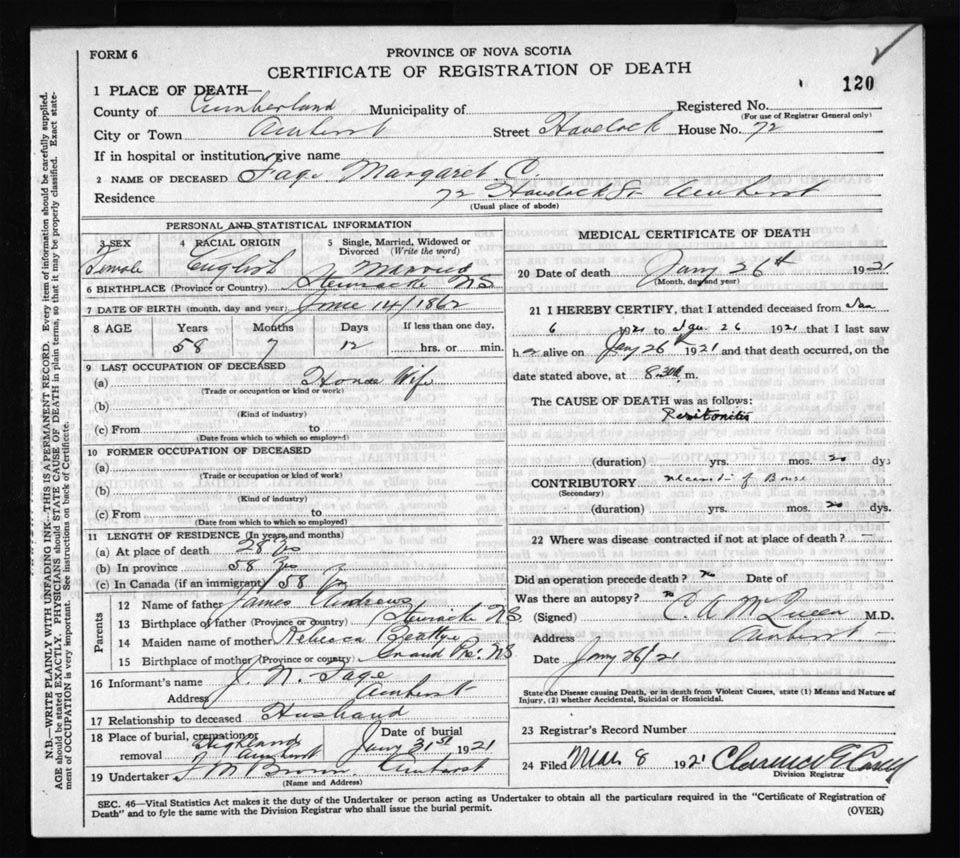 FORM 6
PROVINCE OF NOVA SCOTIA
CERTIFICATE OF REGISTRATION OF DEATH
120
1 PLACE OF DEATH—
County of Cumberland Municipality of Registered No.
(For use of Registrar General only)
City or Town Amherst Street Havelock House No. 72
If in hospital or institution, give name
2 NAME OF DECEASED Margaret C.
Residence 72 Havelock St. Amherst
(Usual place of abode)
PERSONAL AND STATISTICAL INFORMATION
3 SEX 4 RACIAL ORIGIN 5 Single, Married, Widowed or Divorced (Write the word)
Female English Married
6 BIRTHPLACE (Province or Country) NS
7 DATE OF BIRTH (month, day and year) June 14/1862
8 AGE Years Months Days If less than one day,
58 7 12 hrs. or min.
9 LAST OCCUPATION OF DECEASED
(a) House Wife
(Trade or occupation or kind of work)
(b)
(Kind of industry)
(c) From to
(Date from which to which so employed)
10 FORMER OCCUPATION OF DECEASED
(a)
(Trade or occupation or kind of work)
(b)
(Kind of industry)
(c) From to
(Date from which to which so employed)
11 LENGTH OF RESIDENCE (In years and months)
(a) At place of death 28 Yrs
(b) In province 58 Yrs
(c) In Canada (if an immigrant) 58 Yrs
Parents
12 Name of father James Andrews
13 Birthplace of father (Province or country) NS.
14 Maiden name of mother Rebecca
15 Birthplace of mother (Province or country) Grand Pre. NS
16 Informant's name J. N.
Address Amherst
17 Relationship to deceased Husband
18 Place of burial, cremation or removal Highland Amherst Date of burial Jany 31st 1921
19 Undertaker Brown Amherst
(Name and Address)
MEDICAL CERTIFICATE OF DEATH
20 Date of death Jany 26th 1921
(Month, day and year)
21 I HEREBY CERTIFY, that I attended deceased from Jan
6 1921 to Jan 26 1921 that I last saw
her alive on Jany 26th 1921 and that death occurred, on the
date stated above, at 8.30 m.
The CAUSE OF DEATH was as follows:
Peritonitis
(duration) yrs. mos. 20 dys
CONTRIBUTORY of
(Secondary)
(duration) yrs. mos. 20 dys.
22 Where was disease contracted if not at place of death? —
Did an operation precede death? no Date of
Was there an autopsy? no
(Signed) C. A. McQueen M.D.
Address Amherst
Date Jany 26/21
State the Disease causing Death, or in death from Violent Causes, state (1) Means and Nature of
Injury, (2) whether Accidental, Suicidal or Homicidal.
23 Registrar's Record Number
24 Filed Mar 8 1921 Clarence E Casey
Division Registrar
SEC. 46—Vital Statistics Act makes it the duty of the Undertaker or person acting as Undertaker to obtain all the particulars required in the "Certificate of Registration of
Death" and to fyle the same with the Division Registrar who shall issue the burial permit.
(OVER)
N.B.—WRITE PLAINLY WITH UNFADING INK—THIS IS A PERMANENT RECORD. Every item of information should be carefully supplied.
AGE should be stated EXACTLY. PHYSICIANS should STATE CAUSE OF DEATH in plain terms, so that it may be properly classified. Exact state-
ment of OCCUPATION is very important. See instructions on back of Certificate.